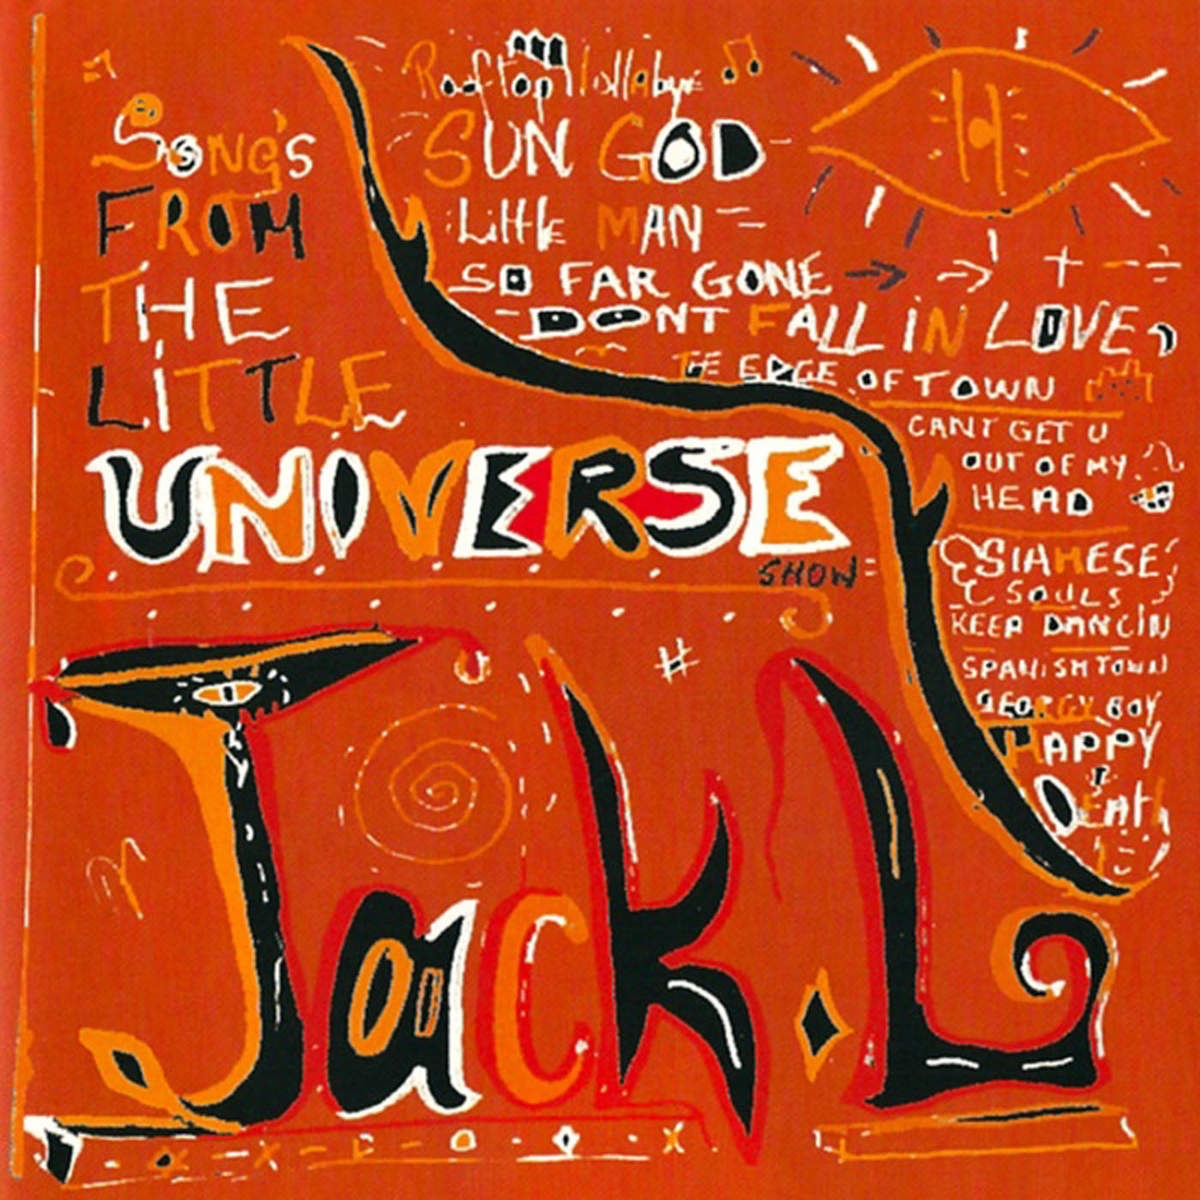 Song's
FROM
THE
LiTTLE
UNIVERSE
SHOW
Rooftop lollabye
SUN GOD
Little MAN
SO FAR GONE
DONT FALL iN LOVE
THE EDGE OF TOWN
CANT GET U
OUT OF MY
HEAD
SIAMESE
SOULS
KEEP DANCIN
SPANISH TOWN
GEORGY BOY
HAPPY
DEATh
Jack.L